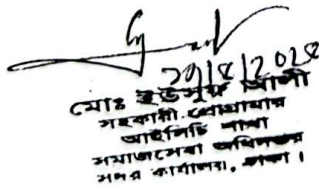 ২৭/৪/২০২৫
মোঃ ইউসুফ আলী
সহকারী প্রোগ্রামার
আইসিটি শাখা
সমাজসেবা অধিদফতর
সদর কার্যালয়, ঢাকা।